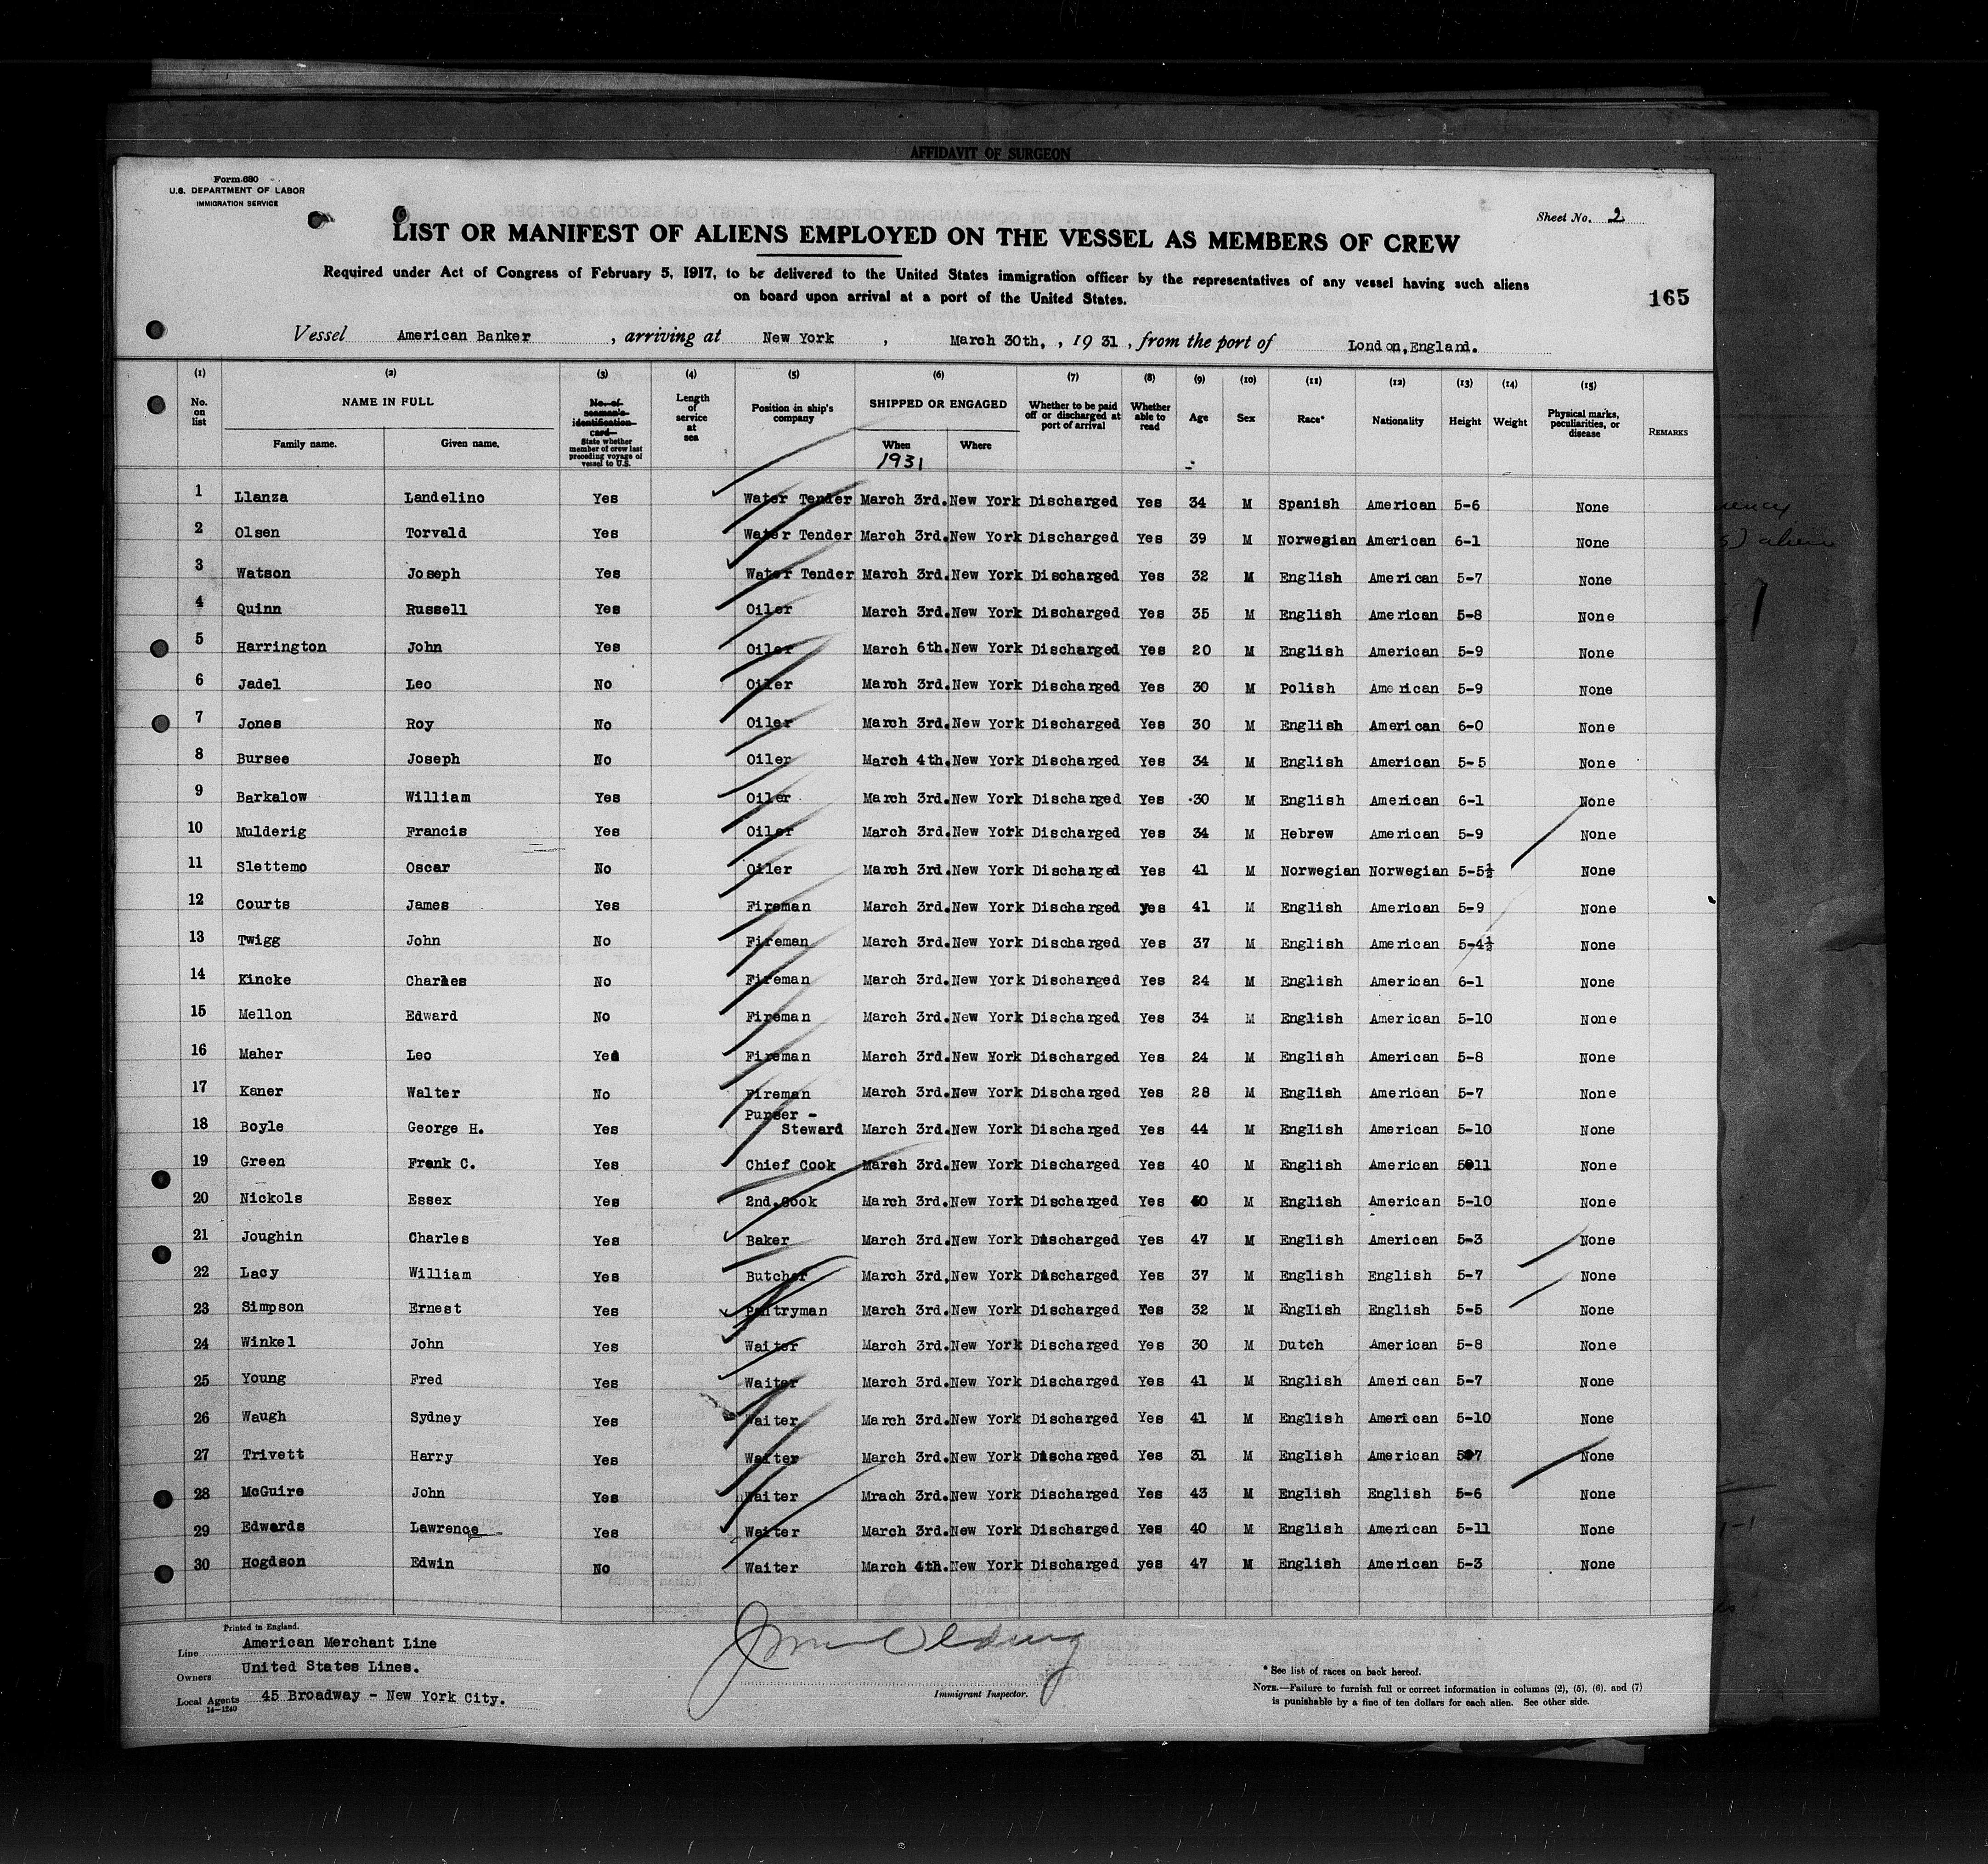 AFFIDAVIT OF SURGEON
Form 680
U.S. DEPARTMENT OF LABOR
IMMIGRATION SERVICE
Sheet No. 2
LIST OR MANIFEST OF ALIENS EMPLOYED ON THE VESSEL AS MEMBERS OF CREW
Required under Act of Congress of February 5, 1917, to be delivered to the United States immigration officer by the representatives of any vessel having such aliens
on board upon arrival at a port of the United States.
165
Vessel American Banker, arriving at New York, March 30th,, 1931, from the port of London,England.
(1) (2) (3) (4) (5) (6) (7) (8) (9) (10) (11) (12) (13) (14) (15)
No. on list NAME IN FULL Family name. Given name. No. of seaman's identification card State whether member of crew last preceding voyage of vessel to U.S. Length of service at sea Position in ship's company SHIPPED OR ENGAGED When 1931 Where Whether to be paid off or discharged at port of arrival Whether able to read Age Sex Race* Nationality Height Weight Physical marks, peculiarities, or disease REMARKS
1 Llanza Landelino Yes Water Tender March 3rd. New York Discharged Yes 34 M Spanish American 5-6 None
2 Olsen Torvald Yes Water Tender March 3rd. New York Discharged Yes 39 M Norwegian American 6-1 None
3 Watson Joseph Yes Water Tender March 3rd. New York Discharged Yes 32 M English American 5-7 None
4 Quinn Russell Yes Oiler March 3rd. New York Discharged Yes 35 M English American 5-8 None
5 Harrington John Yes Oiler March 6th. New York Discharged Yes 20 M English American 5-9 None
6 Jadel Leo No Oiler March 3rd. New York Discharged Yes 30 M Polish American 5-9 None
7 Jones Roy No Oiler March 3rd. New York Discharged Yes 30 M English American 6-0 None
8 Bursee Joseph No Oiler March 4th. New York Discharged Yes 34 M English American 5-5 None
9 Barkalow William Yes Oiler March 3rd. New York Discharged Yes 30 M English American 6-1 None
10 Mulderig Francis Yes Oiler March 3rd. New York Discharged Yes 34 M Hebrew American 5-9 None
11 Slettemo Oscar No Oiler March 3rd. New York Discharged Yes 41 M Norwegian Norwegian 5-5½ None
12 Courts James Yes Fireman March 3rd. New York Discharged yes 41 M English American 5-9 None
13 Twigg John No Fireman March 3rd. New York Discharged Yes 37 M English American 5-4½ None
14 Kincke Charles No Fireman March 3rd. New York Discharged Yes 24 M English American 6-1 None
15 Mellon Edward No Fireman March 3rd. New York Discharged Yes 34 M English American 5-10 None
16 Maher Leo Yes Fireman March 3rd. New York Discharged Yes 24 M English American 5-8 None
17 Kaner Walter No Fireman March 3rd. New York Discharged Yes 28 M English American 5-7 None
18 Boyle George H. Yes Purser - Steward March 3rd. New York Discharged Yes 44 M English American 5-10 None
19 Green Frank C. Yes Chief Cook March 3rd. New York Discharged Yes 40 M English American 5-11 None
20 Nickols Essex Yes 2nd. Cook March 3rd. New York Discharged Yes M English American 5-10 None
21 Joughin Charles Yes Baker March 3rd. New York Discharged Yes 47 M English American 5-3 None
22 Lacy William Yes Butcher March 3rd. New York Discharged Yes 37 M English English 5-7 None
23 Simpson Ernest Yes Pantryman March 3rd. New York Discharged Yes 32 M English English 5-5 None
24 Winkel John Yes Waiter March 3rd. New York Discharged Yes 30 M Dutch American 5-8 None
25 Young Fred Yes Waiter March 3rd. New York Discharged Yes 41 M English American 5-7 None
26 Waugh Sydney Yes Waiter March 3rd. New York Discharged Yes 41 M English American 5-10 None
27 Trivett Harry Yes Waiter March 3rd. New York Discharged Yes 31 M English American 5-7 None
28 McGuire John Yes Waiter Mrach 3rd. New York Discharged Yes 43 M English English 5-6 None
29 Edwards Lawrence Yes Waiter March 3rd. New York Discharged Yes 40 M English American 5-11 None
30 Hogdson Edwin No Waiter March 4th. New York Discharged yes 47 M English American 5-3 None
Printed in England.
Line American Merchant Line
Owners United States Lines.
Local Agents 45 Broadway - New York City.
14-1240
Immigrant Inspector.
* See list of races on back hereof.
NOTE.—Failure to furnish full or correct information in columns (2), (5), (6), and (7)
is punishable by a fine of ten dollars for each alien. See other side.